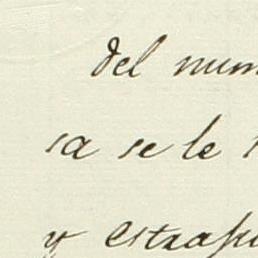 del num
sa se le
y estraju